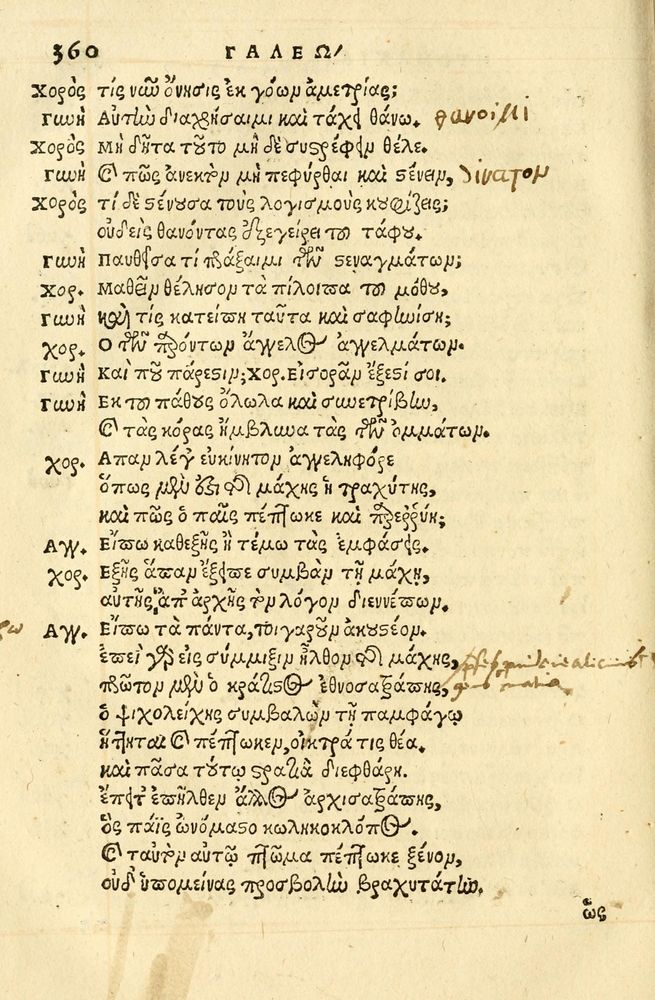 360 ΓΑΛΕΩ
Χορὸς τίς νῶϊ ὄνησις ἐκ γόωμ ἀμετρίας;
Γωὴ Αὐτὼ διαχρήσαιμι καὶ τάχει θάνω. θανοίμι
Χορὸς Μὴ δῆτα τοῦτο μὴ δὲ συστρέφειμ θέλε.
Γωὴ Καὶ πῶς ἀνεκτὸμ μὴ πεφύρθαι καὶ στένειμ,
Χορὸς τί δὲ στένουσα τοὺς λογισμοὺς κουφίζεις;
οὐδεὶς θανόντας ἐξεγείρει τοῦ τάφου.
Γωὴ Παυθεῖσα τί πράξαιμι τῶν στεναγμάτωμ;
Χορ. Μαθεῖμ θέλησομ τὰ πίλοιπα τοῦ μόθου,
Γωὴ καὶ τίς κατείπη ταῦτα καὶ σαφηνίση;
χορ. Ο τῶν παρόντωμ ἄγγελος ἀγγελμάτωμ.
Γωὴ Καὶ ποῦ πάρεστιμ; Χορ. Εἰσορᾶμ ἔξεστί σοι.
Γωὴ Εκ τοῦ πάθους ὄλωλα καὶ συνετρίβην,
Καὶ τὰς κόρας ἤμβλωμαι τὰς τῶν ὀμμάτωμ.
χορ. Απαμ λέγε εὐκίνητομ ἀγγεληφόρε
ὅπως μὲν ἔξει τῆς μάχης ἡ τραχύτης,
καὶ πῶς ὁ παῖς πέπτωκε καὶ παρερρύη;
Αγγ. Εἴπω καθεξῆς ἢ τέμω τὰς ἐμφάσεις.
χορ. Εξῆς ἅπαμ ἔξειπε συμβὰμ τῇ μάχῃ,
αὐτῆς ἀπ' ἀρχῆς τὸμ λόγομ διεννέπωμ.
Αγγ. Εἴπω τὰ πάντα, τοιγαροῦμ ἀκουστέομ.
ἐπεὶ γὰρ εἰς σύμμιξιμ ἦλθομ τῆς μάχης,
πρῶτομ μὲν ὁ κράτιστος ἐθνοσατράπης,
ὁ ψιχολείχης συμβαλὼμ τῇ παμφάγῳ
ἥττηται καὶ πέπτωκεμ, οἰκτρά τις θέα.
καὶ πᾶσα τούτῳ στρατιὰ διεφθάρη.
ἔπειτ' ἐπῆλθεμ ἄλλος ἀρχισατράπης,
ὃς πάϊς ὠνόμαστο κωληκοκλόπος.
Καὶ ταυτὸμ αὐτῷ πτῶμα πέπτωκε ξένομ,
οὐδ' ὑπομείνας προσβολὼ βραχυτάτην.
ὡς